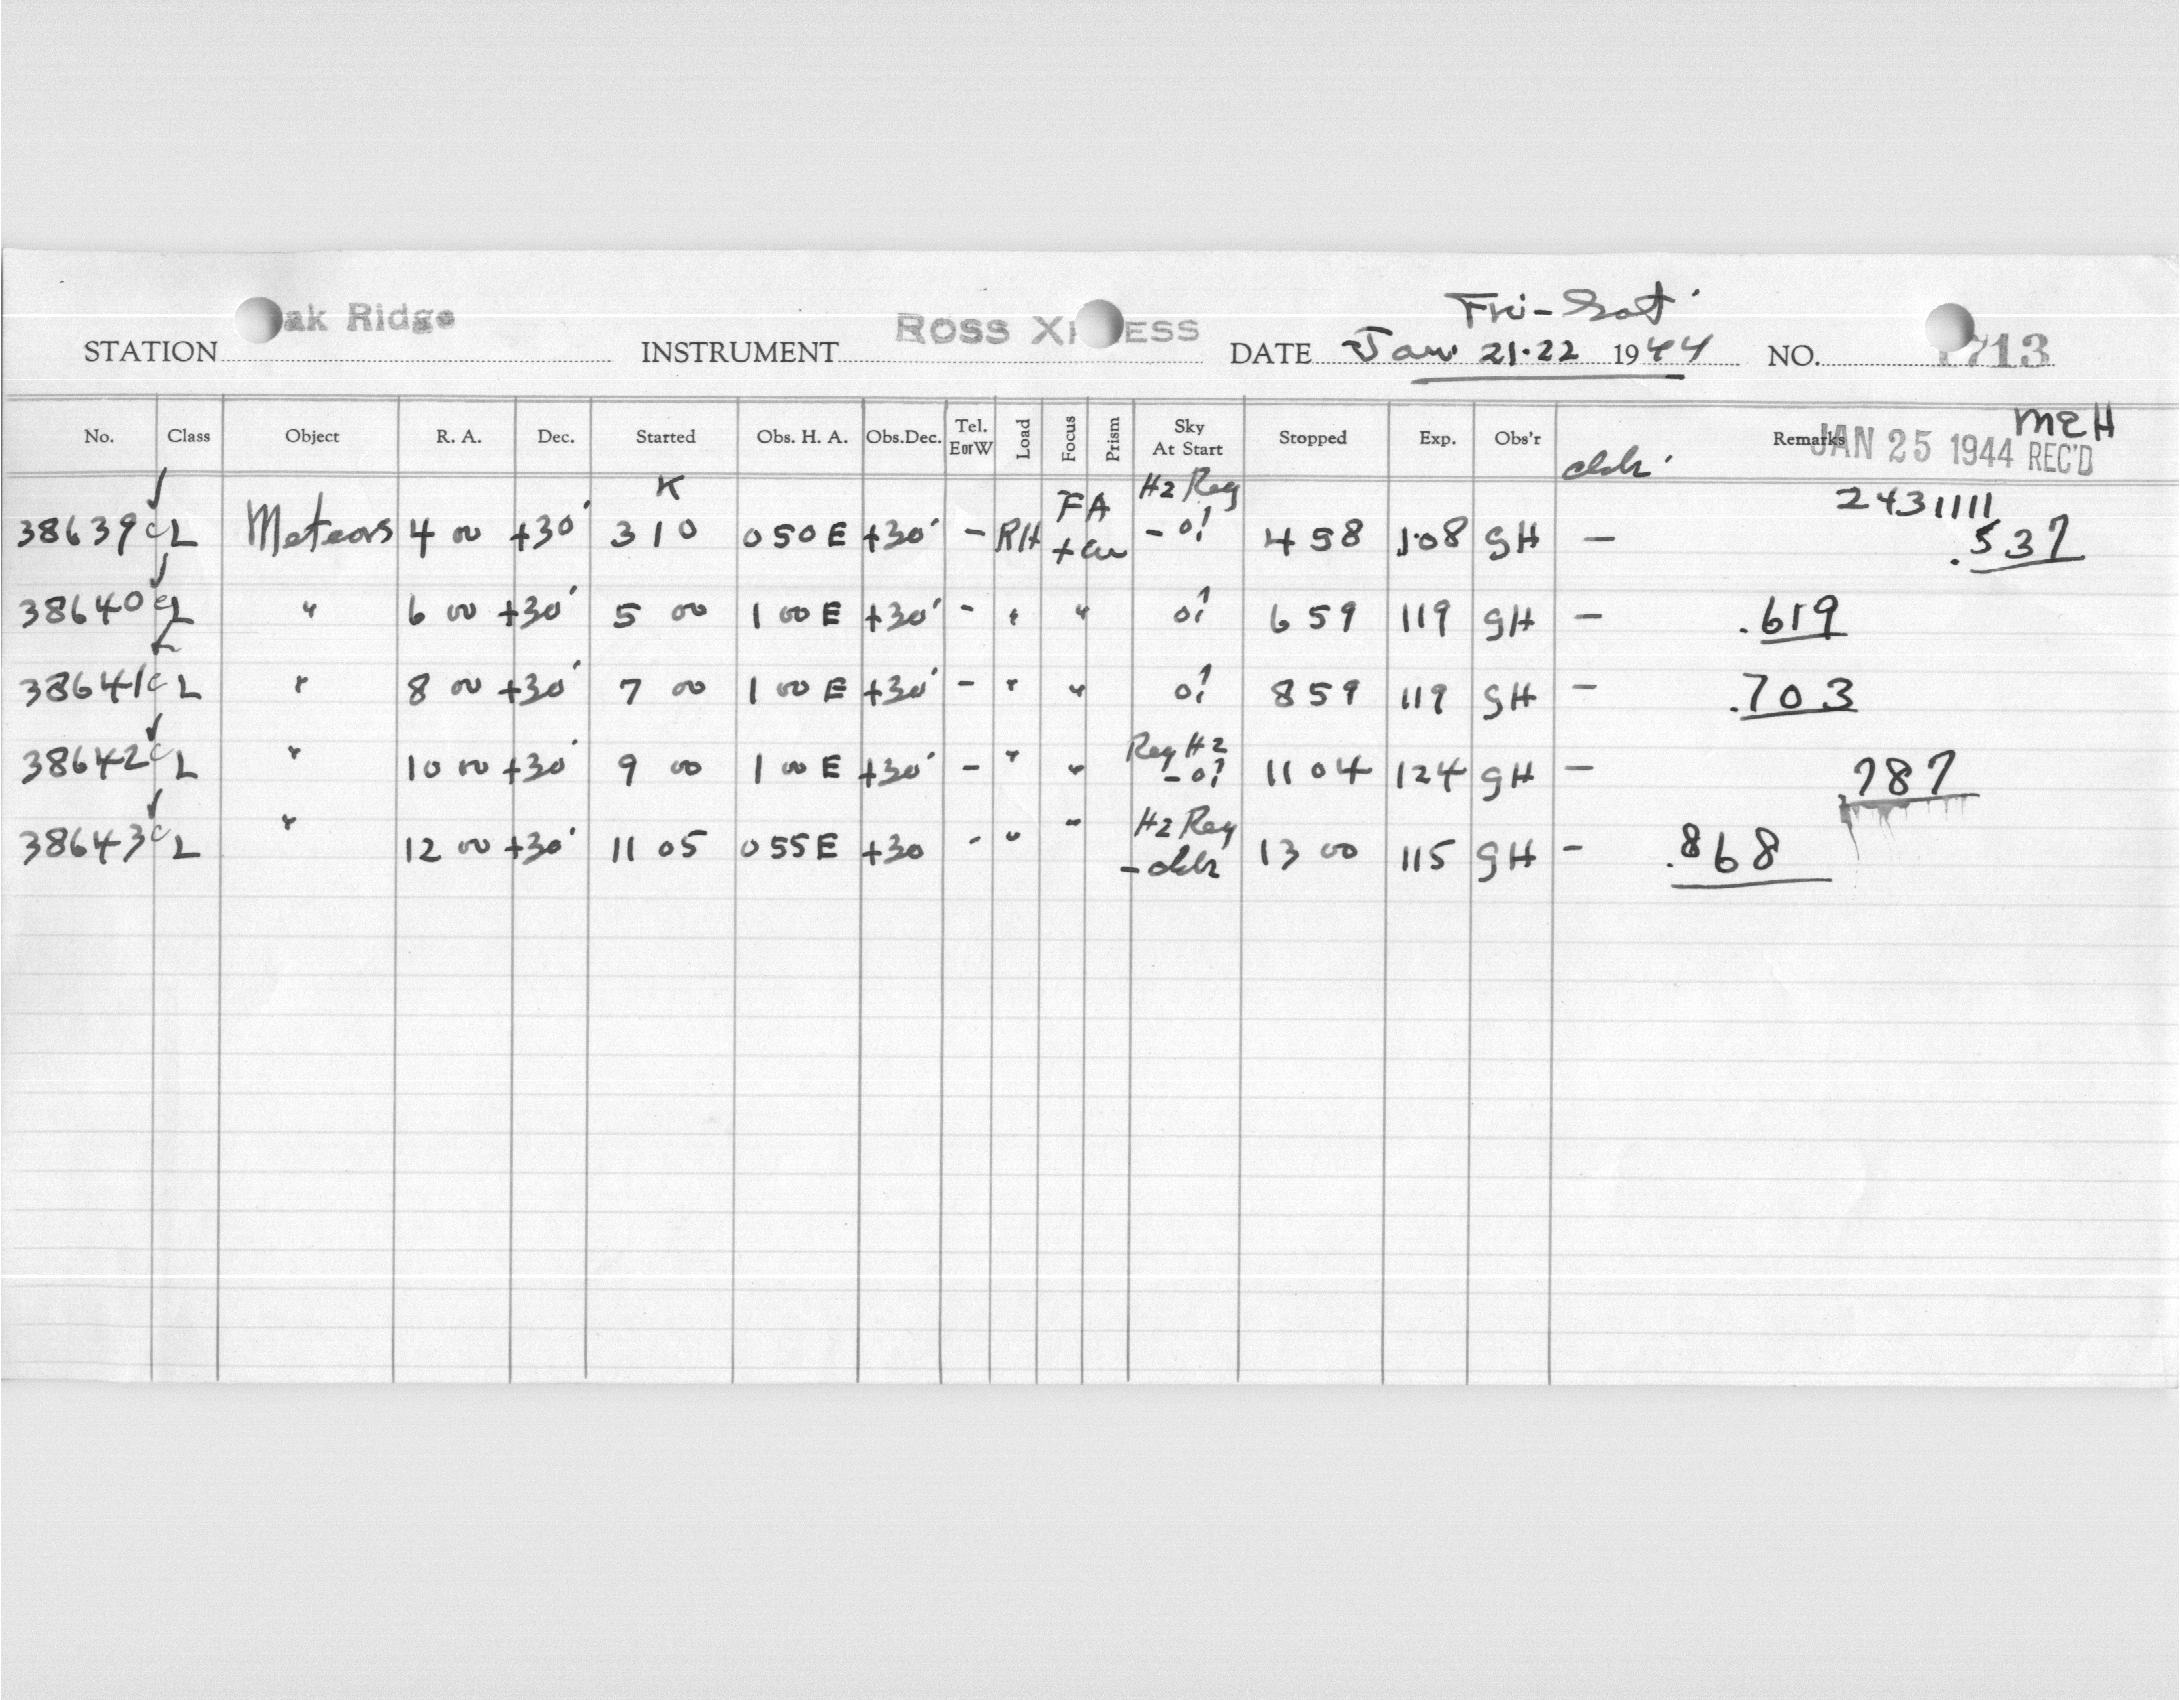 Fri - Sat.
STATION Oak Ridge INSTRUMENT ROSS XPRESS DATE Jan 21-22 1944 NO. 1713
No. Class Object R. A. Dec. Started Obs. H. A. Obs.Dec. Tel. E or W Load Focus Prism Sky At Start Stopped Exp. Obs'r Remarks
MEH
JAN 25 1944 REC'D
K H2 Reg 2431111
38639 c L Meteors 4 00 +30° 3 10 0 50 E +30° - RH FA - 0! 4 58 1.08 GH - .537
38640 c L " 6 00 +30° 5 00 1 00 E +30° - " " 0! 6 59 119 GH - .619
38641 c L " 8 00 +30° 7 00 1 00 E +30° - " " 0! 8 59 119 GH - .703
Reg H2
38642 c L " 10 00 +30° 9 00 1 00 E +30° - " " - 0! 11 04 124 GH - .787
H2 Reg
38643 c L " 12 00 +30° 11 05 0 55 E +30 - " " 13 00 115 GH - .868